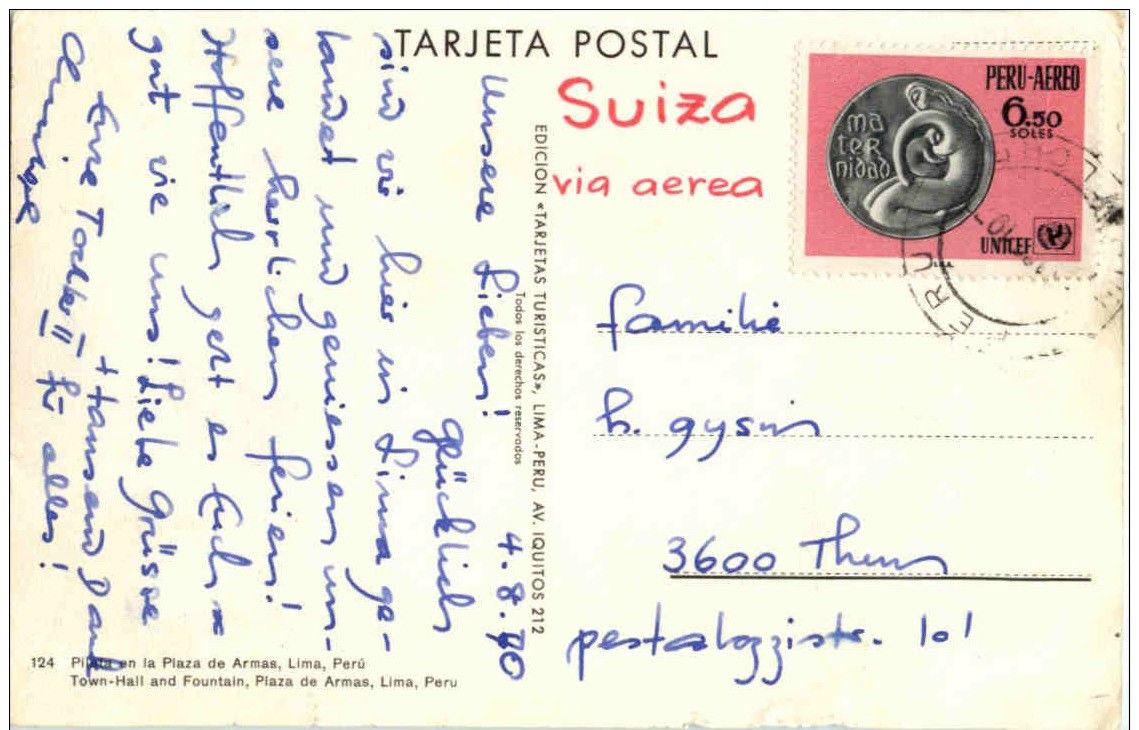 TARJETA POSTAL
Suiza
via aerea
PERU-AEREO
6.50
SOLES
ma
ter
nidad
UNICEF
4.8.70
Unsere Lieben!
Glücklich
sind wir hier in Lima ge-
landet und geniessen un-
sere herrlichen Ferien!
Hoffentlich geht es Euch so
gut wie uns! Liebe Grüsse
Eure Tochter II + tausend Dank
für alles!
EDICION «TARJETAS TURISTICAS», LIMA-PERU, AV. IQUITOS 212
Todos los derechos reservados
familie
h. gysin
3600 Thun
pestalozzistr. 101
124 Pileta en la Plaza de Armas, Lima, Perú
Town-Hall and Fountain, Plaza de Armas, Lima, Peru